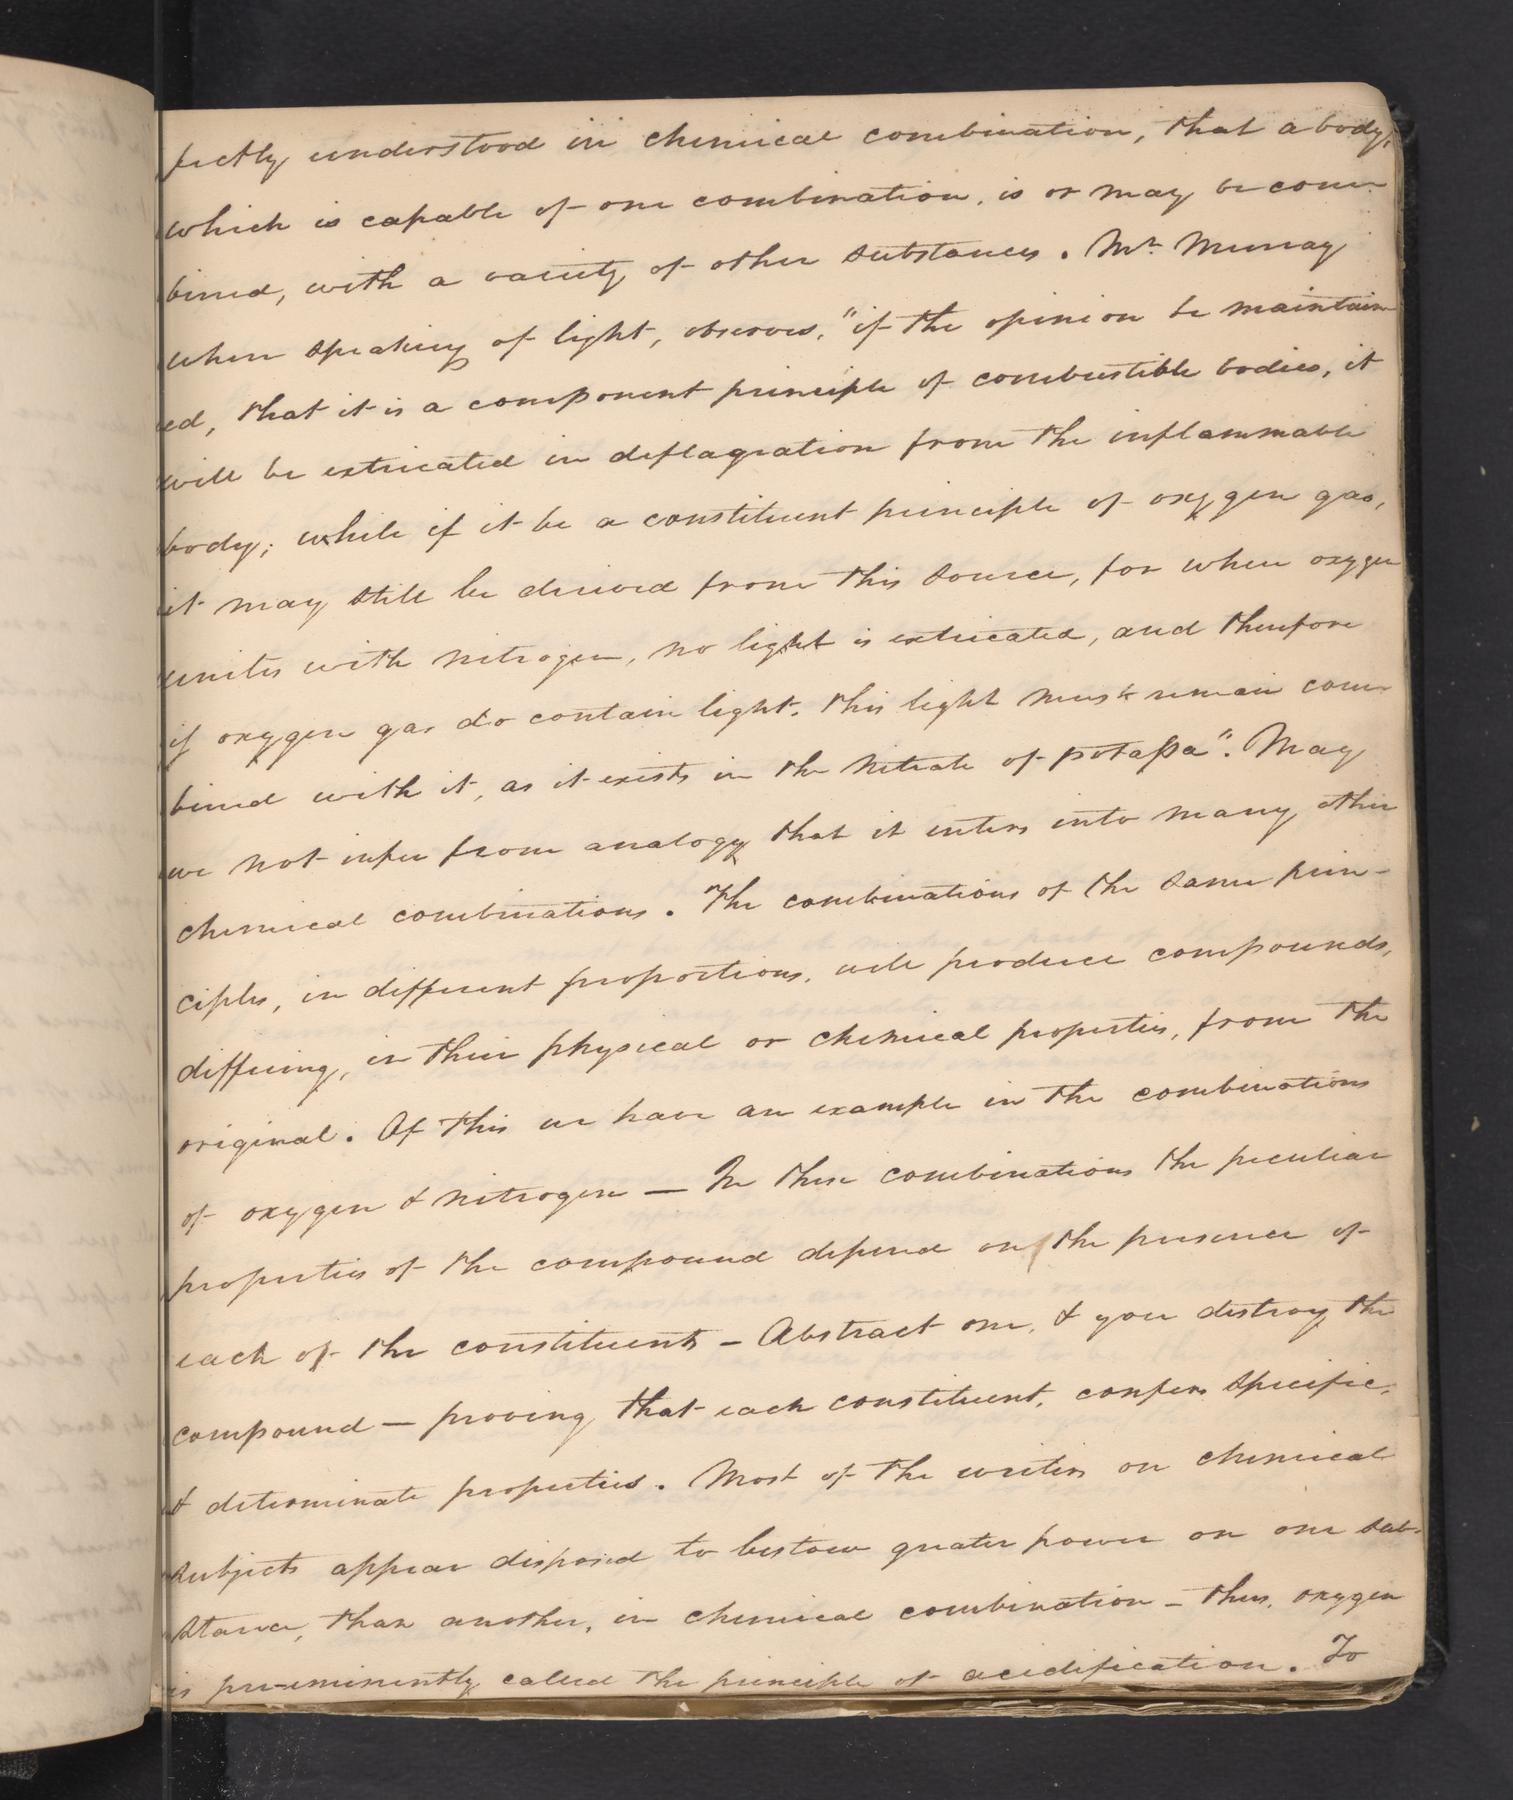 fectly understood in chemical combination, that a body,
which is capable of one combination, is or may be com-
bined, with a variety of other substances. Mr. Murray
when speaking of light, observes, "if the opinion be maintain-
ed, that it is a component principle of combustible bodies, it
will be extricated in deflagration from the inflammable
body; while if it be a constituent principle of oxygen gas,
it may still be derived from this source, for when oxygen
unites with nitrogen, no light is extricated, and therefore
if oxygen gas do contain light, this light must remain com-
bined with it, as it exists in the nitrate of potassa". May
we not infer from analogy that it enters into many other
chemical combinations. The combinations of the same prin-
ciples, in different proportions, will produce compounds,
differing, in their physical or chemical properties, from the
original. Of this we have an example in the combinations
of oxygen & nitrogen — In these combinations the peculiar
properties of the compound depend on the presence of
each of the constituents — Abstract one, & you destroy the
compound — proving that each constituent, confers specific,
& determinate properties. Most of the writers on chemical
subjects appear disposed to bestow greater power on one sub-
stance, than another, in chemical combination — thus, oxygen
is pre-eminently called the principle of acidification. To